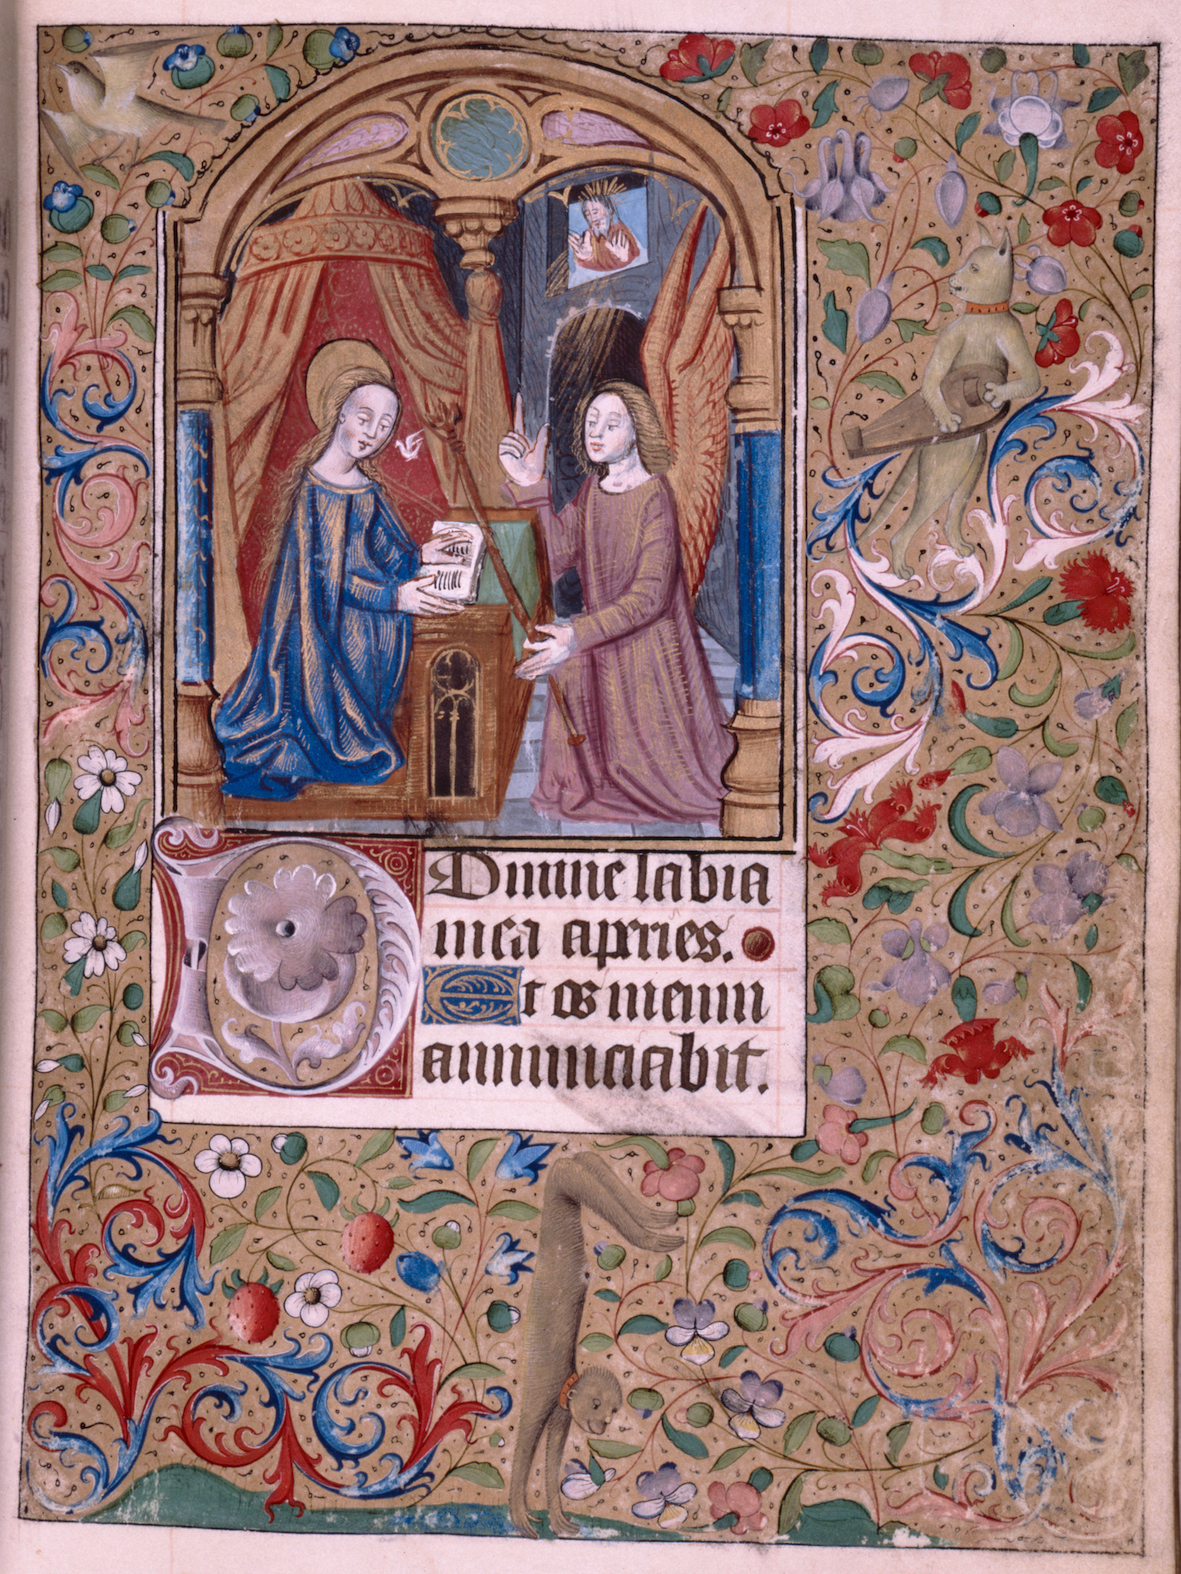 DOmine labia
mea aperies.
Et os meum
annunciabit.